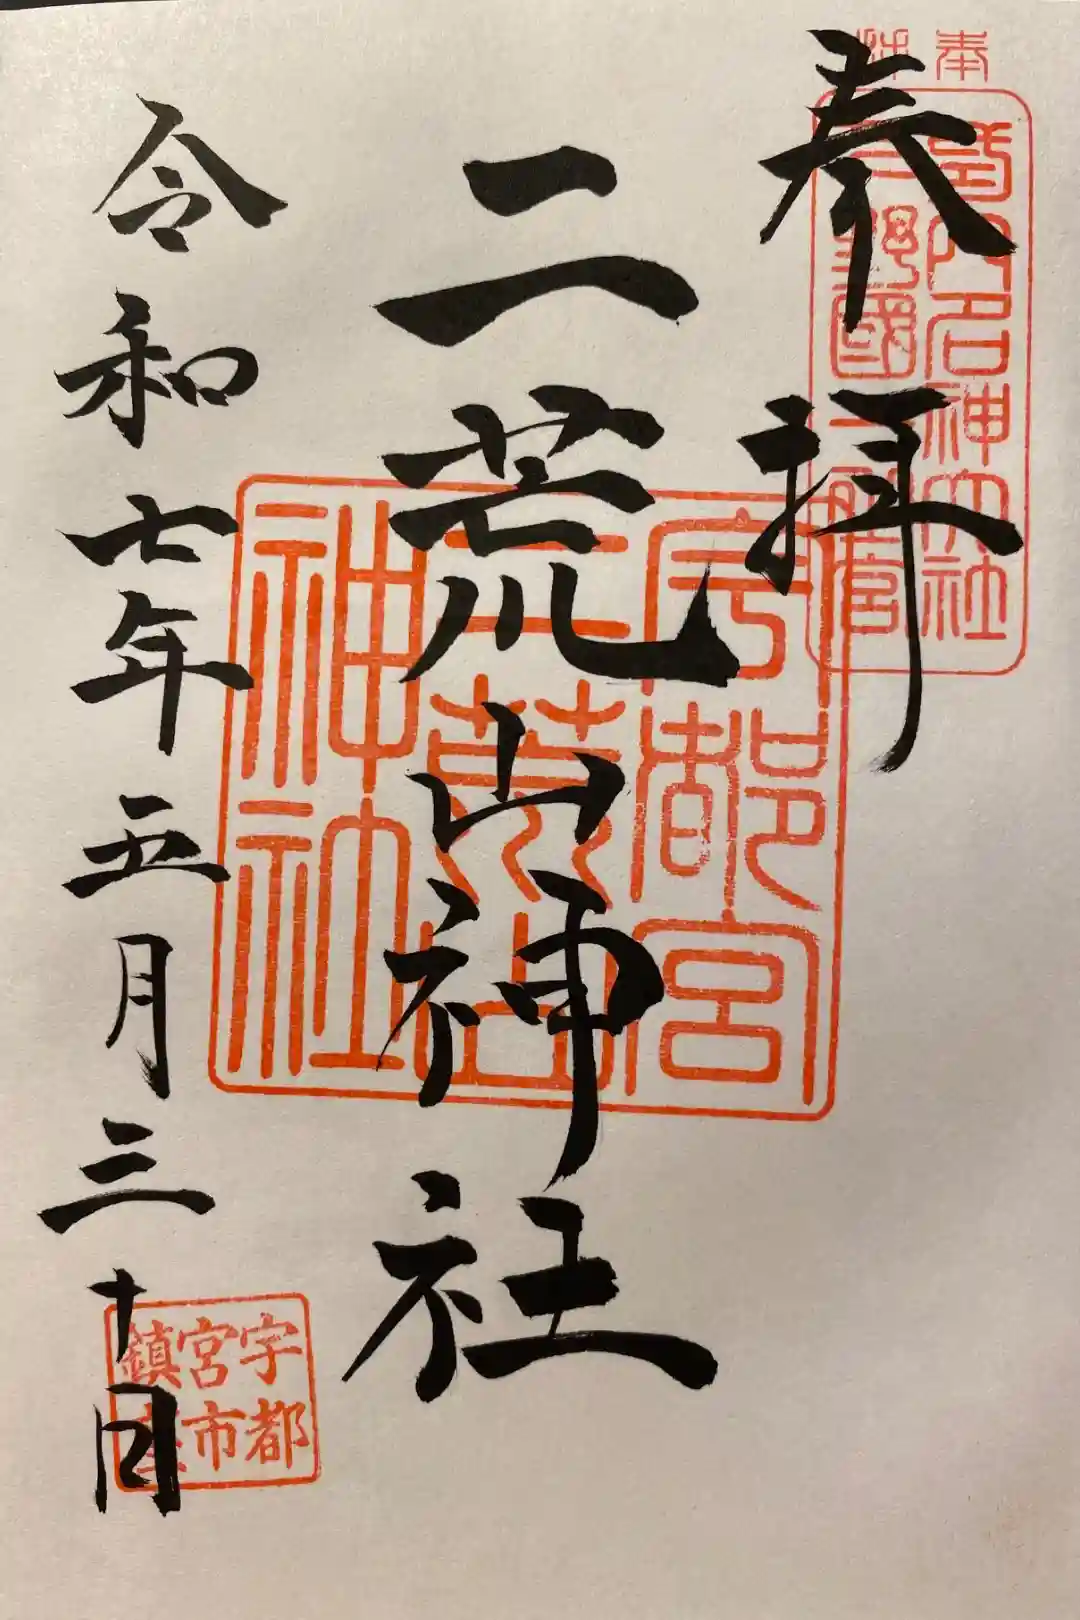 奉拝
二荒山神社
令和七年五月三十日
奉拝
式内名神大社
下野國一之宮
宇都宮
二荒山
神社
宇都
宮市
鎮座